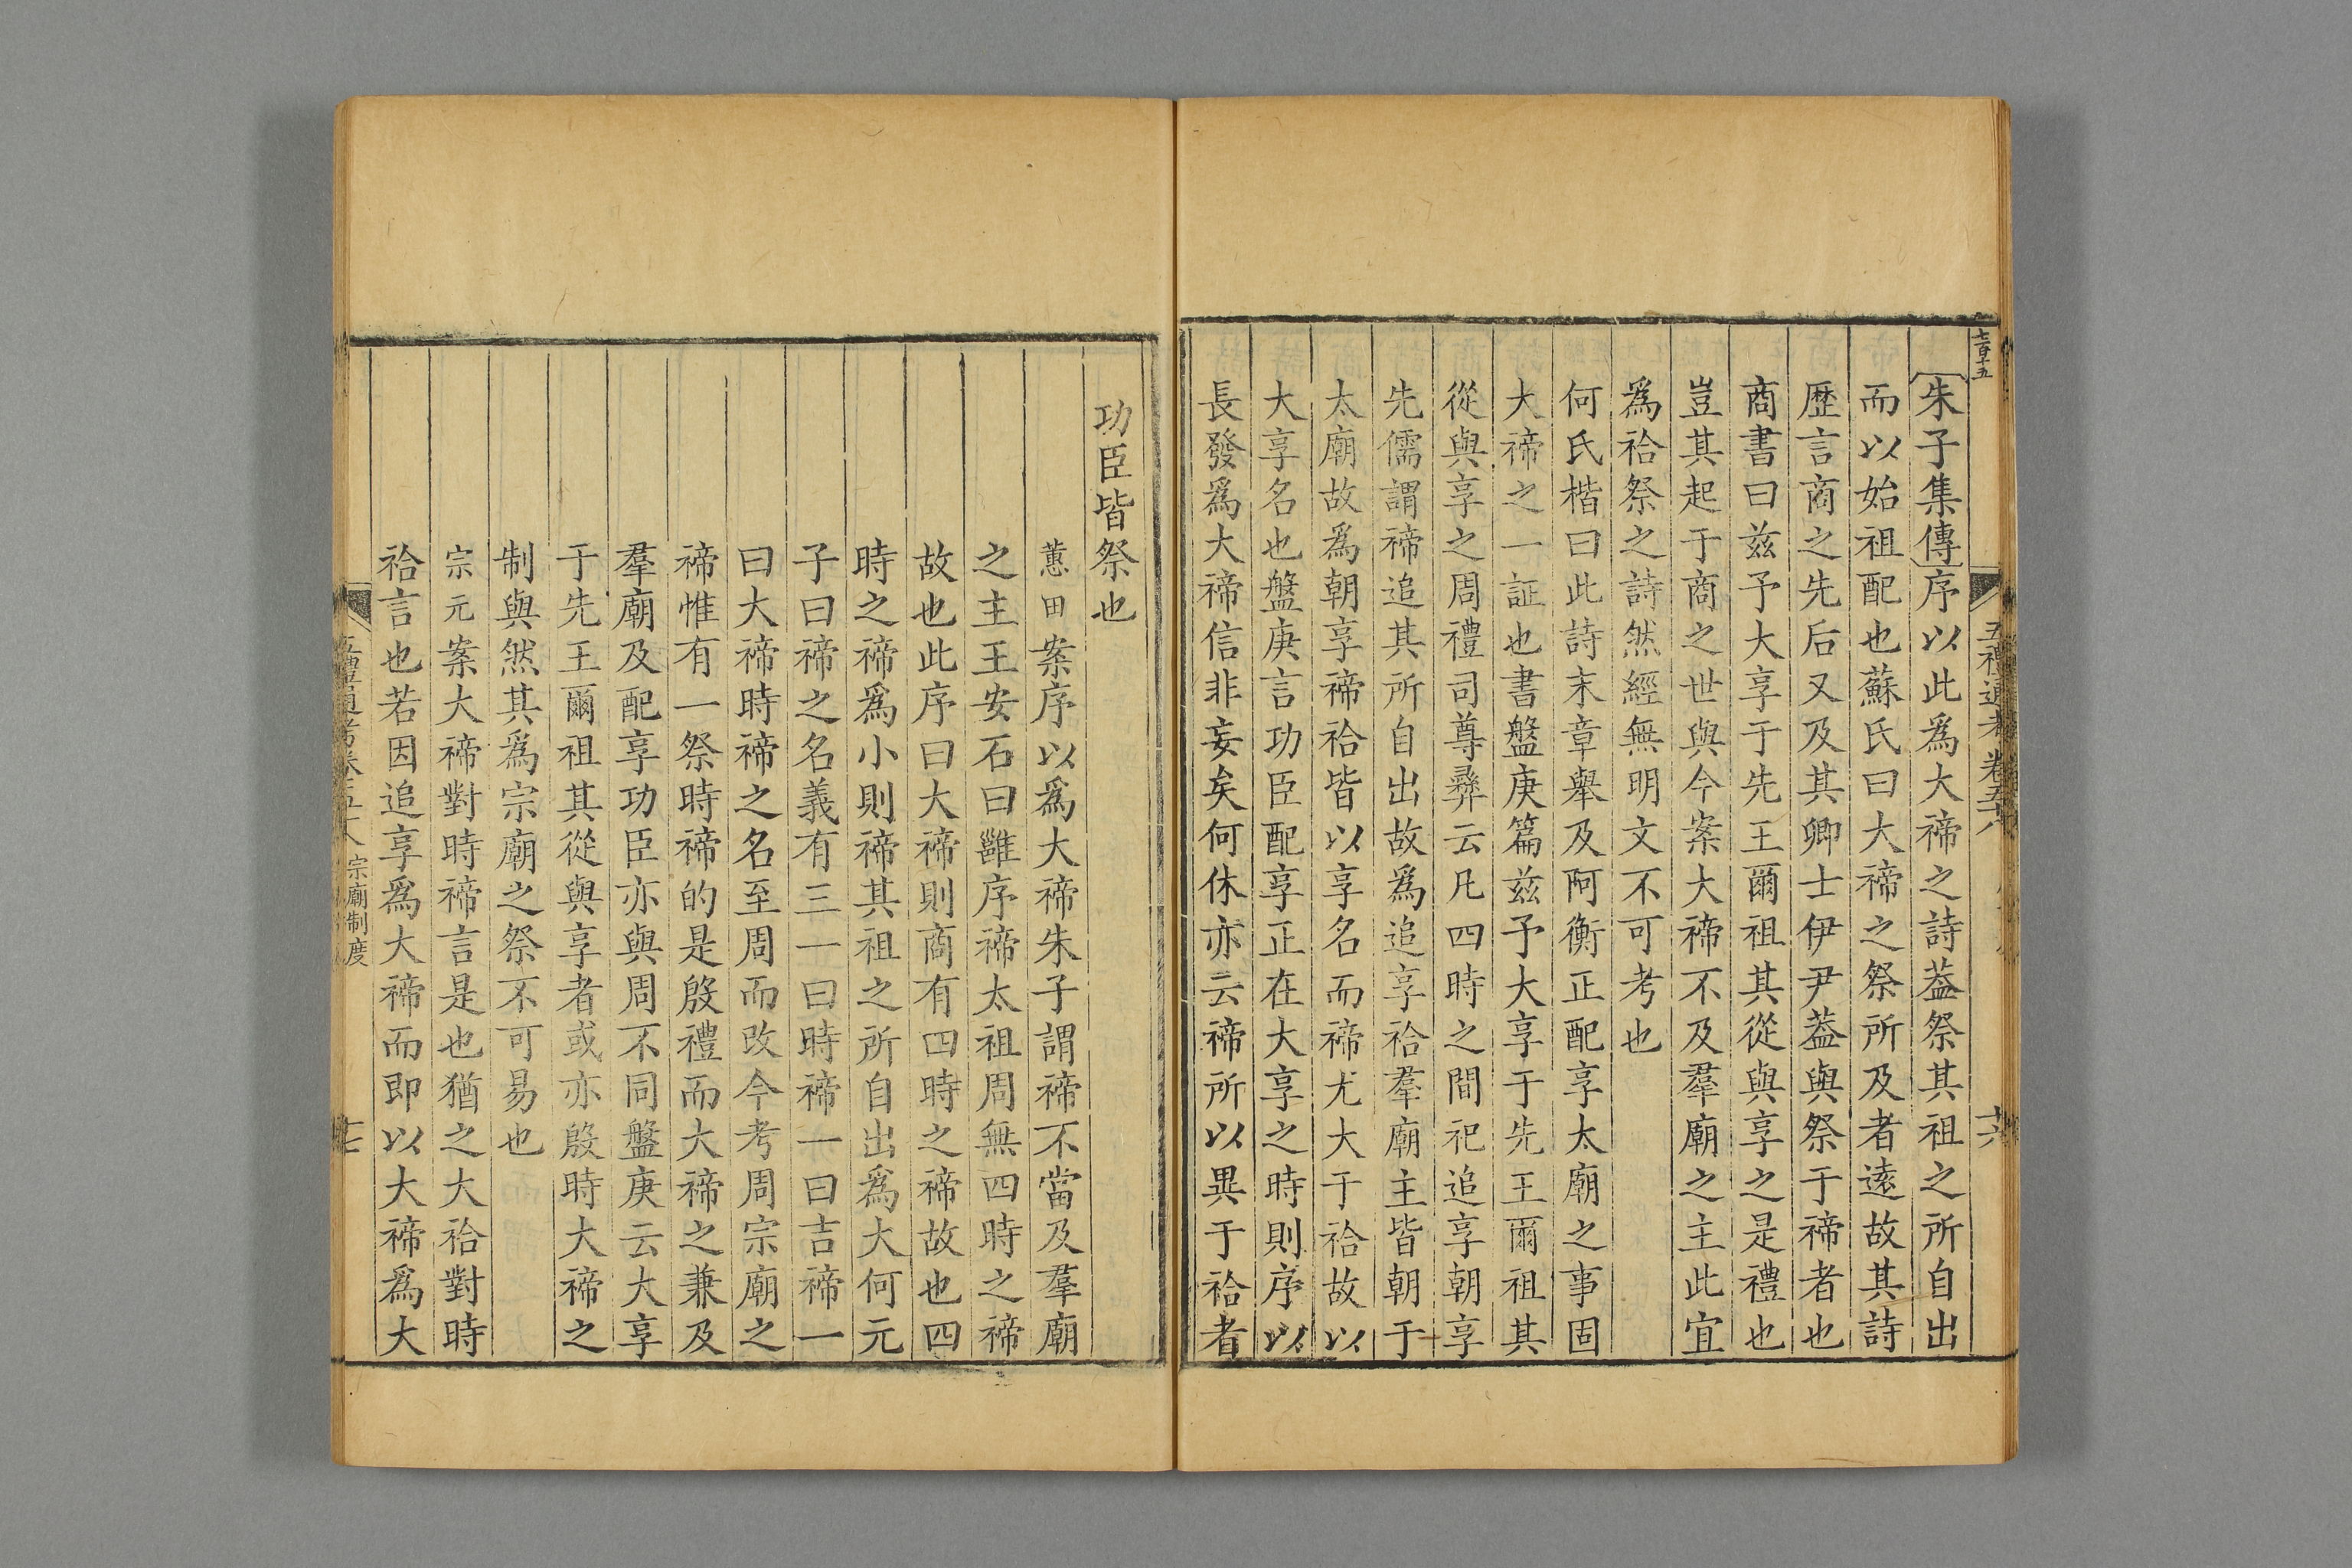 七百十五
五禮通考卷五十八
十六
朱子集傳序以此爲大禘之詩葢祭其祖之所自出
而以始祖配也蘇氏曰大禘之祭所及者遠故其詩
歷言商之先后又及其卿士伊尹葢與祭于禘者也
商書曰兹予大享于先王爾祖其從與享之是禮也
豈其起于商之世與今案大禘不及羣廟之主此宜
爲祫祭之詩然經無明文不可考也
何氏楷曰此詩末章舉及阿衡正配享太廟之事固
大禘之一証也書盤庚篇兹予大享于先王爾祖其
從與享之周禮司尊彝云凡四時之間祀追享朝享
先儒謂禘追其所自出故爲追享祫羣廟主皆朝于
太廟故爲朝享禘祫皆以享名而禘尤大于祫故以
大享名也盤庚言功臣配享正在大享之時則序以
長發爲大禘信非妄矣何休亦云禘所以異于祫者
功臣皆祭也
蕙田案序以爲大禘朱子謂禘不當及羣廟
之主王安石曰雝序禘太祖周無四時之禘
故也此序曰大禘則商有四時之禘故也四
時之禘爲小則禘其祖之所自出爲大何元
子曰禘之名義有三一曰時禘一曰吉禘一
曰大禘時禘之名至周而改今考周宗廟之
禘惟有一祭時禘的是殷禮而大禘之兼及
羣廟及配享功臣亦與周不同盤庚云大享
于先王爾祖其從與享者或亦殷時大禘之
制與然其爲宗廟之祭不可易也
宗元案大禘對時禘言是也猶之大祫對時
祫言也若因追享爲大禘而即以大禘爲大
五禮通考卷五十八
宗廟制度
十七